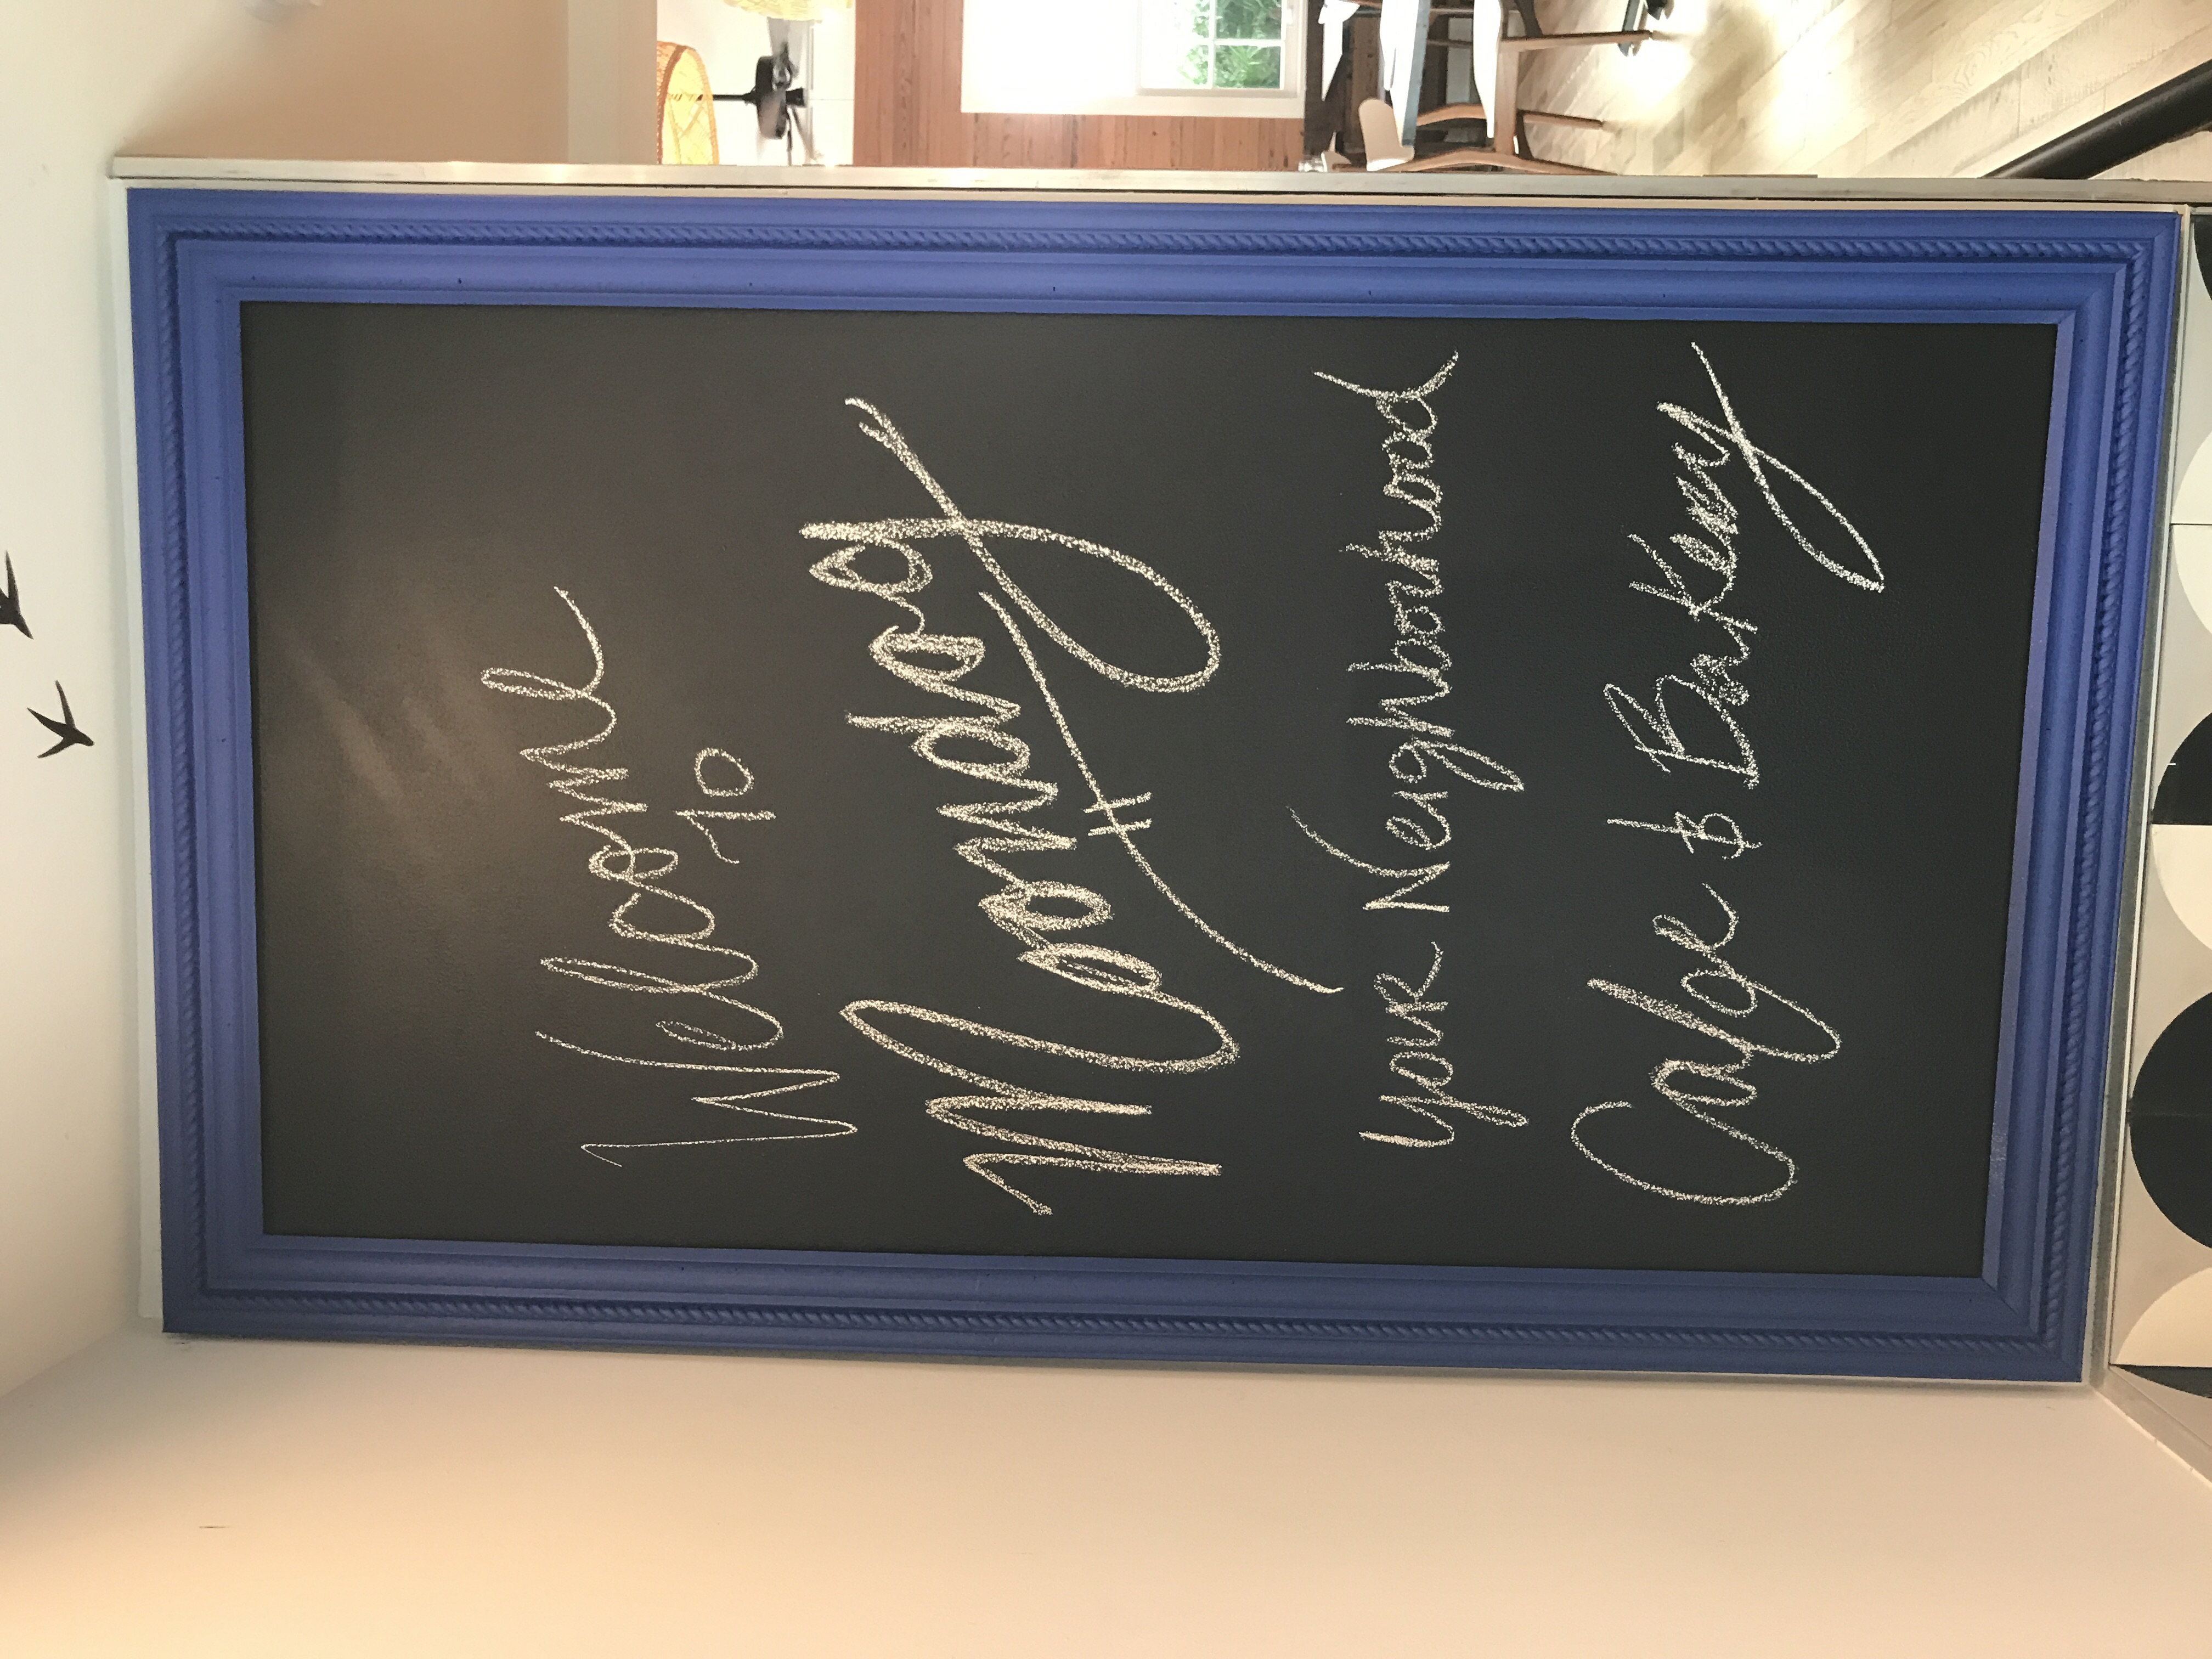 Welcome
to
Moondog
your Neighborhood
Cafe & Bakery